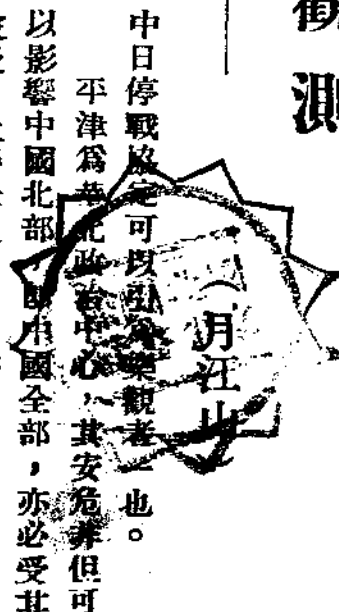 觀測
（月江山
中日停戰協定可以引為樂觀者一也。
平津為華北政治中心，其安危非但可
以影響中國北部，即中國全部，亦必受其